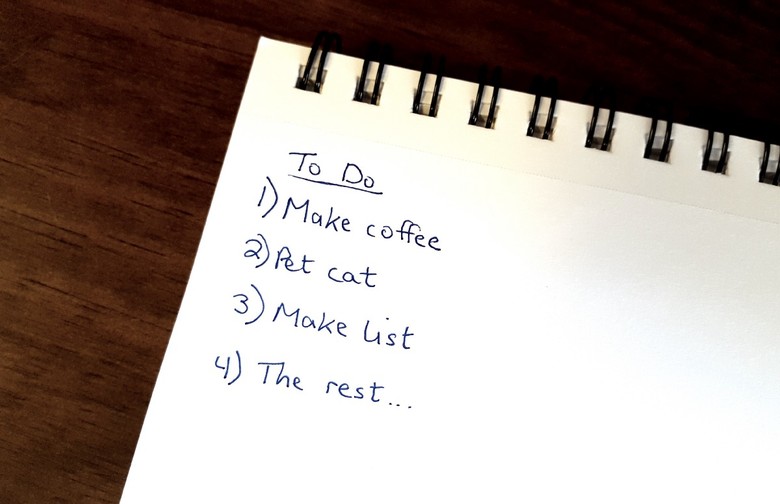 To Do
1) Make coffee
2) Pet cat
3) Make list
4) The rest...